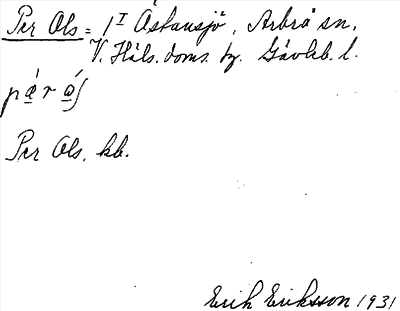 Per Ols = 1 I Åskansjö, Arbrå sn.
V. Häls. doms. by. Gävleb. l.
pǽr ǫ́ʃ
Per Ols, kb.
Erik Eriksson 1931